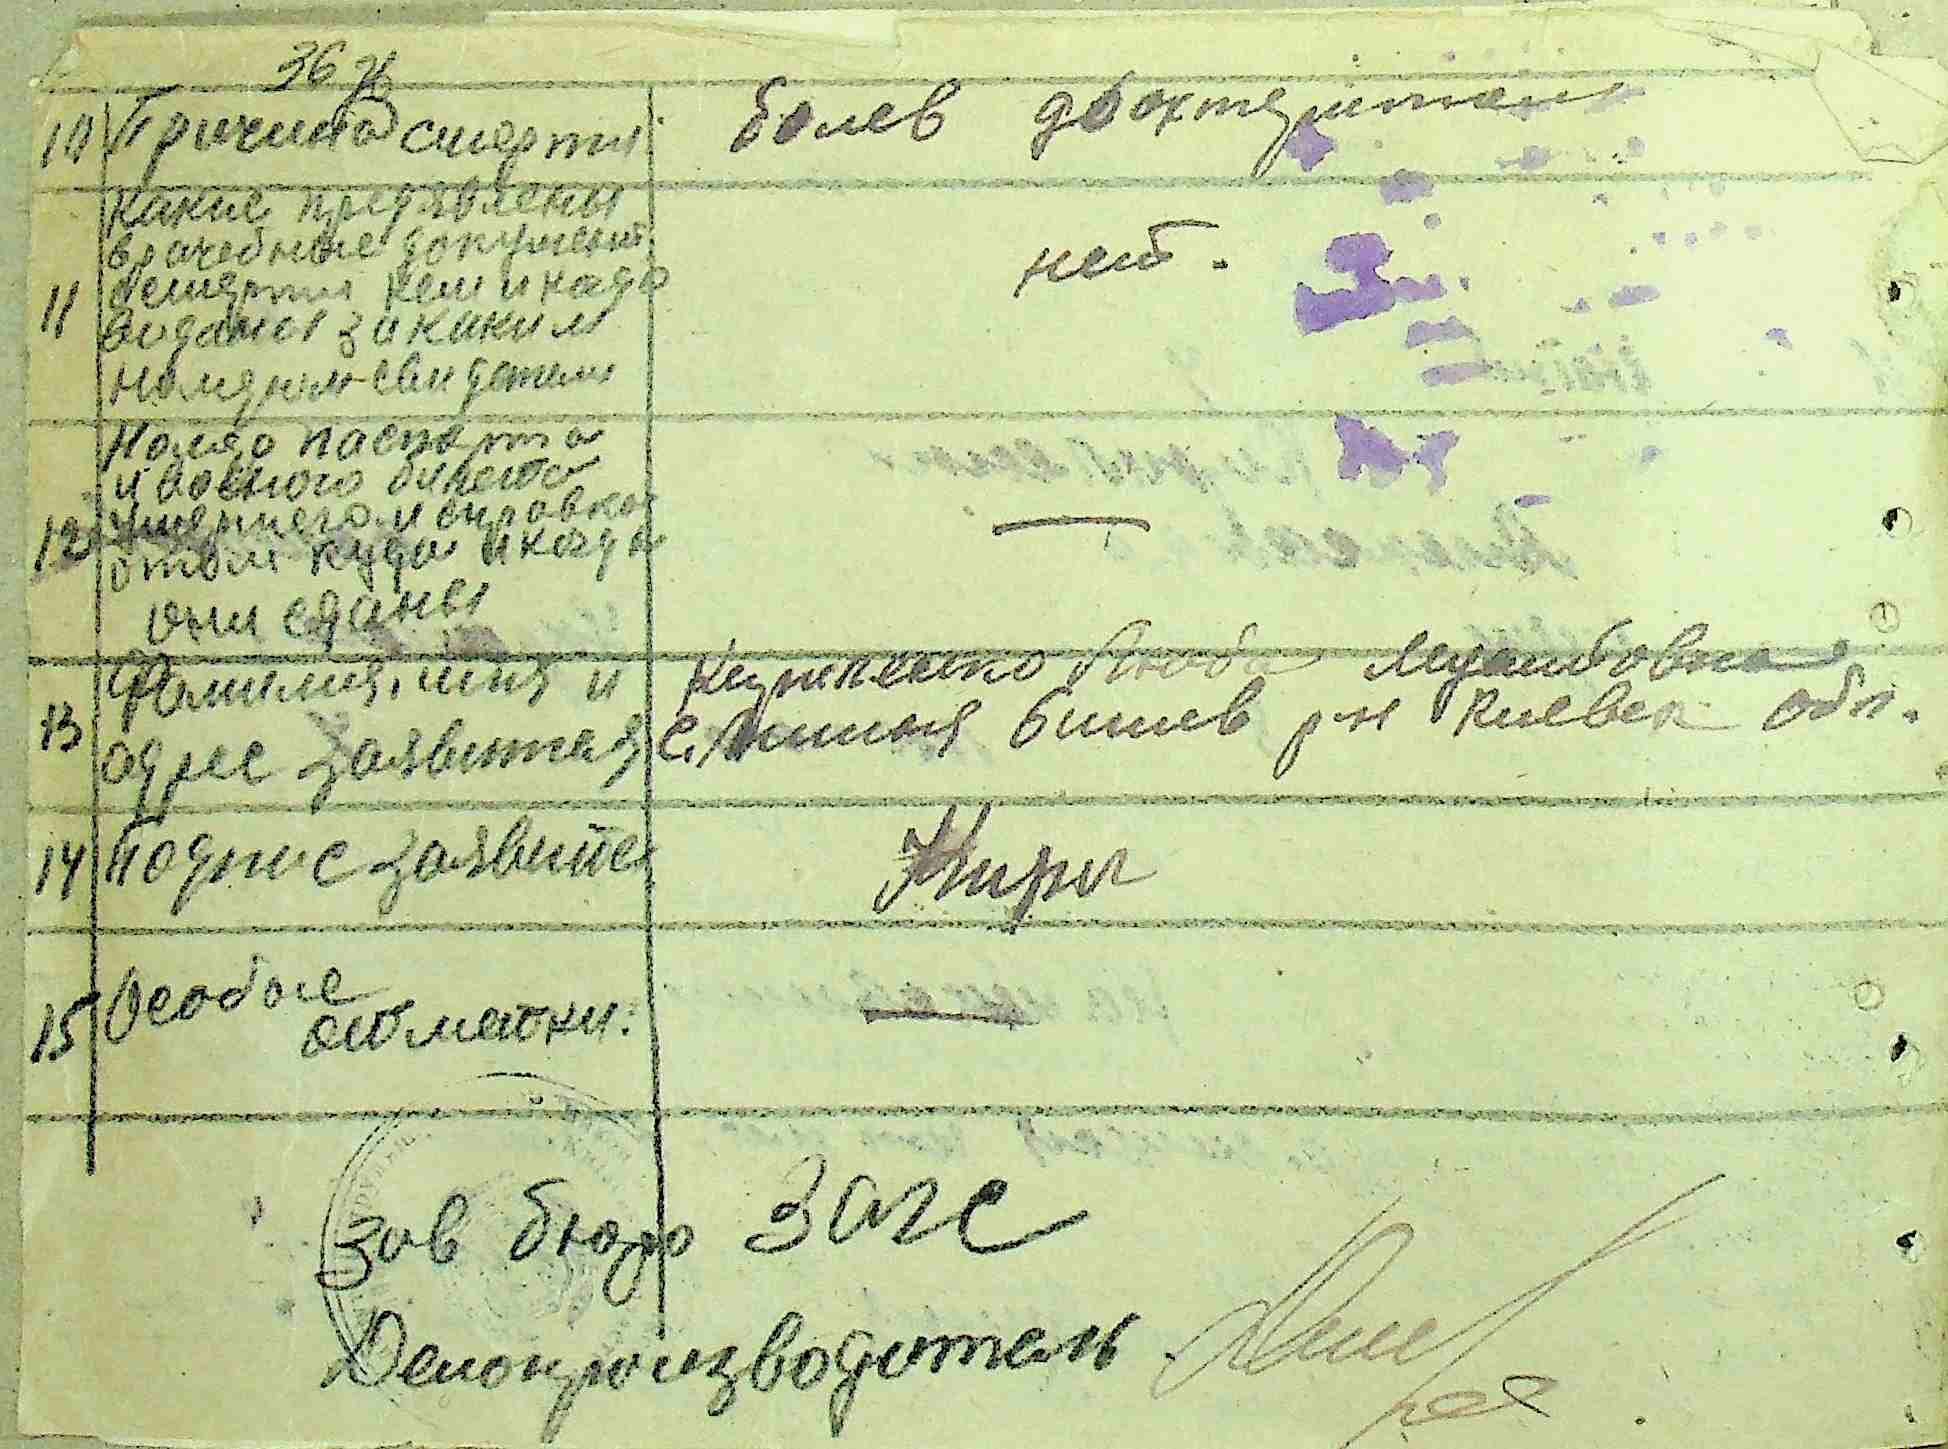 36 ж
10 Причина смерти: болев
11 Какие предявлены
врачебные документ.
о смерти кем и когда
виданы за каким
номером свидетели
нет.
12 Номер паспорта
и военного билета
умершего и справка
о том куда и когда
они сданы —
13 Фамилия, имя и
адрес заявителя
Люба
с. Бишев р-н Киевск обл.
14 Подпис заявител
15 Особые
отметки: —
Зав бюро Загс
Делопроизводитель